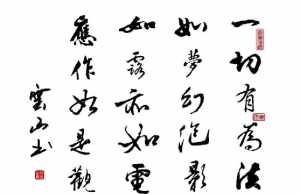 一切有為法
如夢幻泡影
如露亦如電
應作如是觀
雲山書